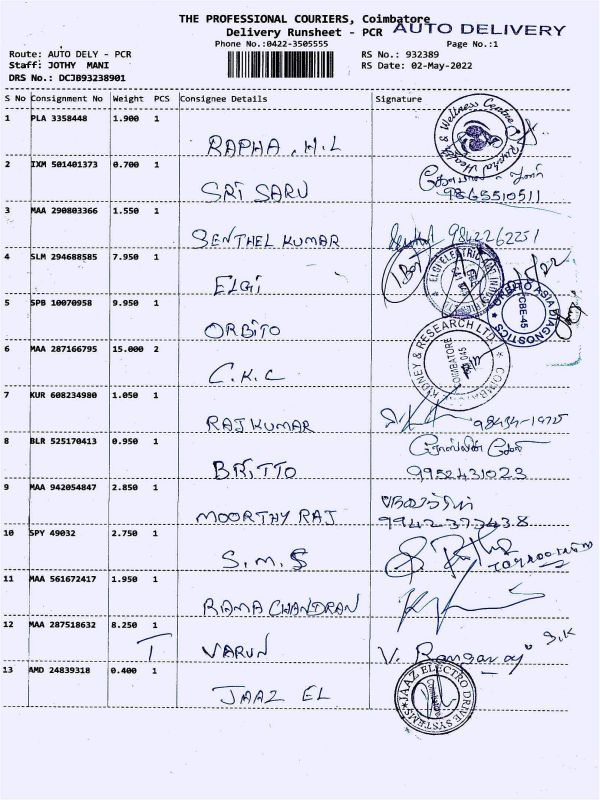 THE PROFESSIONAL COURIERS, Coimbatore
Delivery Runsheet - PCR AUTO DELIVERY
Phone No.:0422-3505555 Page No.:1
Route: AUTO DELY - PCR RS No.: 932389
Staff: JOTHY MANI RS Date: 02-May-2022
DRS No.: DCJB93238901
S No Consignment No Weight PCS Consignee Details Signature
1 PLA 3358448 1.900 1
RAPHA .H.L
& Wellness Centre Rapha Health
2 IXM 501401373 0.700 1
SRI SARU
9865510511
3 MAA 290803366 1.550 1
SENTHEL KUMAR 9842262251
4 SLM 294688585 7.950 1
ELGI
1.Box
5 SPB 10070958 9.950 1
ORBITO
ORBITO ASIA DIAGNOSTICS
CBE-45
6 MAA 287166795 15.000 2
C.K.C
KIDNEY & RESEARCH LTD.
COIMBATORE
7 KUR 608234980 1.050 1
RAJKUMAR
8 BLR 525170413 0.950 1
BRITTO 9952431023
9 MAA 942054847 2.850 1
MOORTHY RAJ
10 SPY 49032 2.750 1
S.M.S
11 MAA 561672417 1.950 1
RAMA CHANDRAN
12 MAA 287518632 8.250 1
T VARUN V. Rangaraj
13 AMD 24839318 0.400 1
JAAZ EL
JAAZ ELECTRO DRIVE SYSTEMS